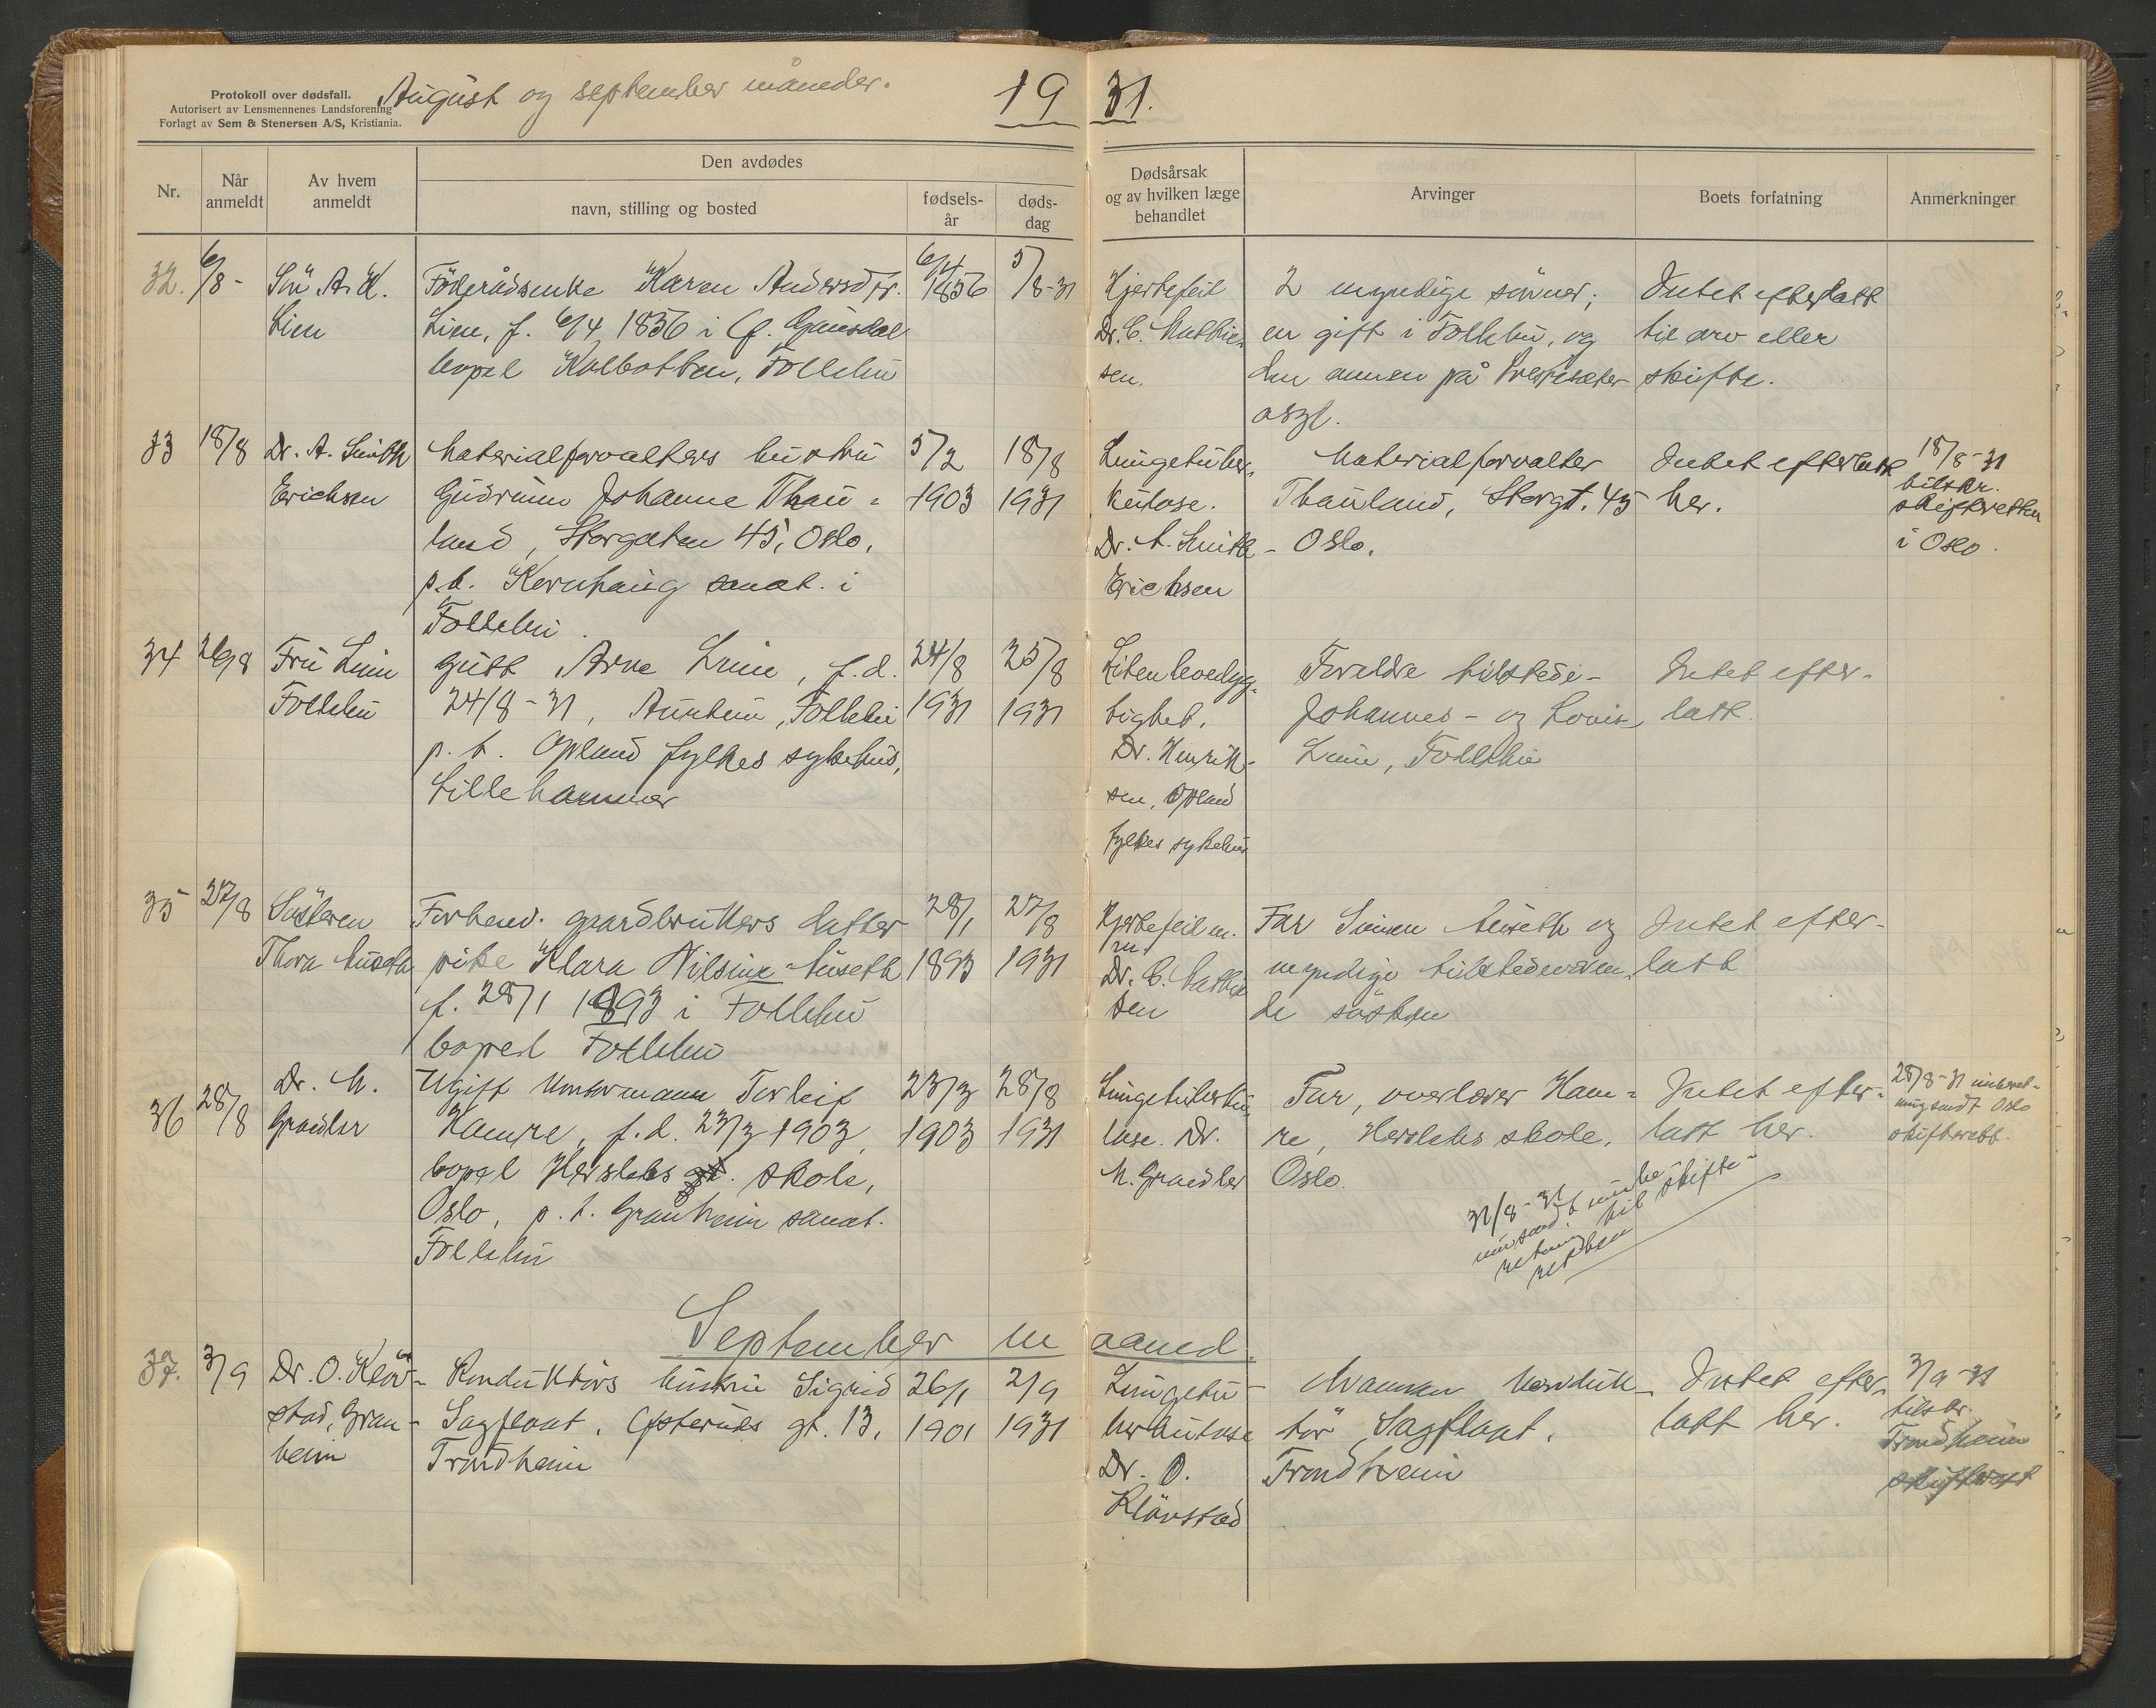 Protokoll over dødsfall.
Autorisert av Lensmennenes Landsforening
Forlagt av Sem & Stenersen A/S, Kristiania.
August og september måneder.
19 31.
Nr.
Når anmeldt
Av hvem anmeldt
Den avdødes
navn, stilling og bosted
fødsels-
år
døds-
dag
Dødsårsak
og av hvilken læge
behandlet
Arvinger
Boets forfatning
Anmerkninger
32. 6/8 -
Sön A. K.
Lien
Föderådsenke Karen Andersdtr.
Lien, f. 6/4 1856 i Ø. Gausdal
bopel Kalbotten, Follebu
6/4
1856
5/8-31
Hjertefeil
Dr. C. Mathie-
sen.
2 myndige sönner;
en gift i Follebu, og
den annen på
aszl.
Intet efterlatt
til arv eller
skifte.
33 18/8
Dr. A. Smith
Erichsen
Materialforvalters hustru
Gudrun Johanne Thau=
land, Storgaten 45, Oslo,
p.t. Kornhaug sanat. i
Follebu
5/2
1903
18/8
1931
Lungetuber-
kulose.
Dr. A. Smith-
Erichsen
Materialforvalter
Thauland, Storgt. 45
Oslo.
Intet efterlatt
her.
18/8-31
tilskr.
skifteretten
i Oslo.
34 26/8
Fru Lien
Follebu
Gutt Arve Lien, f.d.
24/8-31, Follebu
p.t. Opland fylkes sykehus,
Lillehammer
24/8
1931
25/8
1931
Liten levedyg-
tighet.
Dr. Henrik-
sen, Opland
fylkes sykehus
Foreldre tilstede-
Johannes- og Lovise
Lien, Follebu
Intet efter-
latt.
35 27/8
Søsteren
Thora Auseth
Forhenv. gaardbrukers datter
pike Klara Nilsine Auseth
f. 28/1 1893 i Follebu
bopel Follebu
28/1
1893
27/8
1931
Hjertefeil m.
Dr. C. Mathie
sen
Far Simen Auseth og
myndige tilstedeværen-
de søsken
Intet efter-
latt
36 28/8
Dr. M.
Grandler
Ugift kontormann Torleif
Hamre, f.d. 23/3 1903,
bopel Herslebs skole,
Oslo, p.t. Granheim sanat.
Follebu
23/3
1903
28/8
1931
Lungetuberku
lose. Dr.
M. Grandler
Far, overlærer Ham=
re, Herslebs skole,
Oslo.
Intet efter-
latt her.
28/8-31 underret-
ning sendt Oslo
skifterett.
31/8-31
til skifte-
retten
September maaned.
37. 3/9
Dr. O. Klöv-
stad, Gran-
heim
Konduktörs hustru Sigrid
Sagfloat, gt. 13,
Trondheim
26/1
1901
2/9
1931
Lungetu-
berkulose
Dr. O.
Klövstad
Mannen konduk-
tör Sagfloat,
Trondheim
Intet efter-
latt her.
3/9-31
tilskr.
Trondheim
skifterett